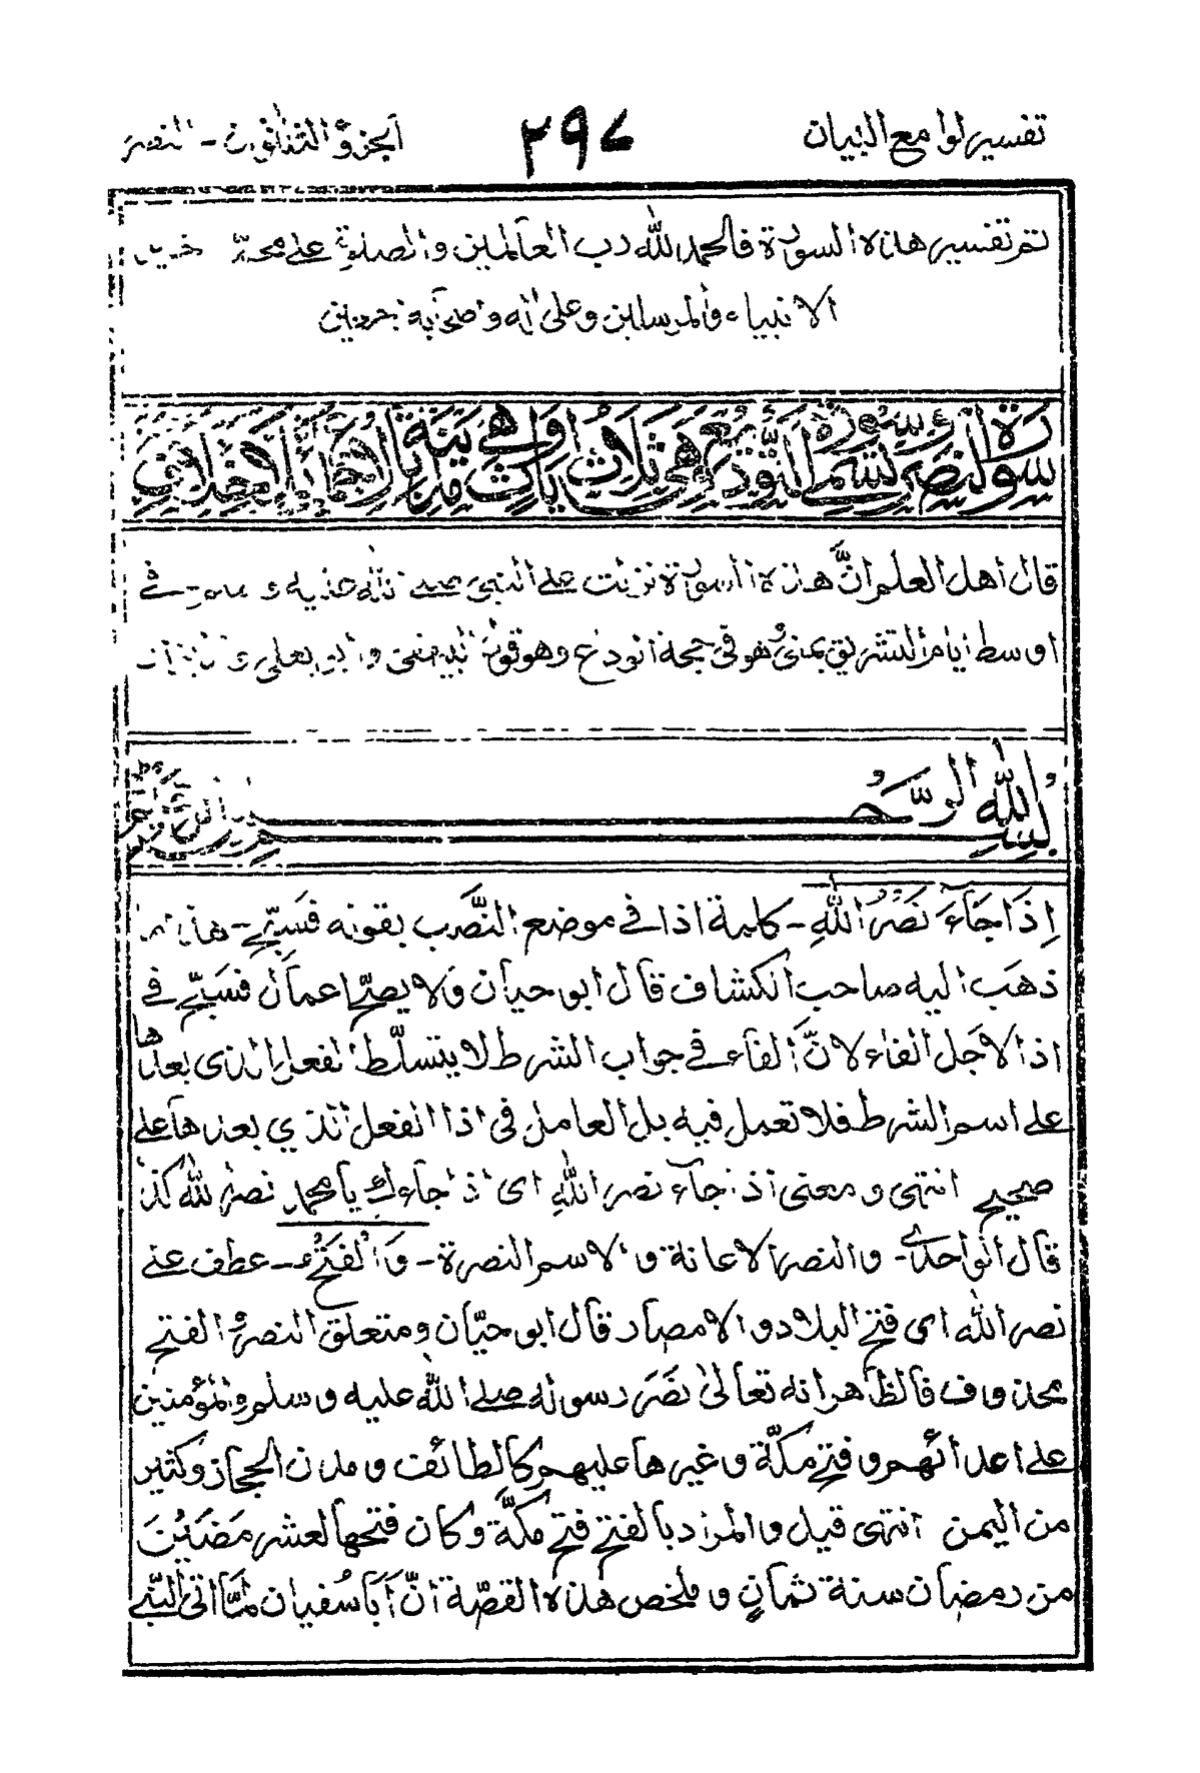 تفسير لوامع البيان
٢٩٧
الجزؤ الثلاثون - النصر
تم تفسير هذه السورة فالحمد لله رب العالمين والصلوة على محمد
الانبياء والمرسلين وعلى اله وصحابه
سورة النصر وهي ثلاث
قال اهل العلم انّ هذه السورة نزلت على النبي في
اوسط ايام التشريق بمنى وهو في حجة الوداع وهو قول البيهقى وابو يعلى
بسم الله الرحمن الرحيم
اِذَا جَآءَ نَصْرُ اللهِ - كلمة اذا في موضع النَّصب بقوله فَسَبِّحْ - هذا
ذهَب اليه صاحب الكشاف قال ابو حيان ولا يصحّ اعمال فسَبّح في
اذا لاجل الفاء لانّ الفآء في جواب الشرط لا يتسلّط الفعل الذى بعدها
على اسم الشرط فلا تعمل فيه بل العامل في اذا الفعل الذي بعدها على
صحيح انتهى ومعنى اذا جآء نصر اللهِ اى اذا جآءك يا محمد نصر الله كذا
قال الواحدى - والنصر الاعانة والاسم النصرة - وَالْفَتْحُ - عطف على
نصر الله اى فتح البلاد والامصار قال ابو حيّان ومتعلق النصر والفتح
محذوف فالظاهر انه تعالىٰ نَصَرَ رسوله صلى الله عليه وسلم والمؤمنين
على اعدائهم وفتح مكّة وغيرها عليهم كالطائف ومدن الحجاز وكثير
من اليمن انتهى قيل والمراد بالفتح فتح مكّة وكان فتحها لعشر مَضَيْنَ
من رمضان سنة ثمانٍ وملخص هذه القصّة انّ اَبَا سُفيان لمّا اتى النبّي